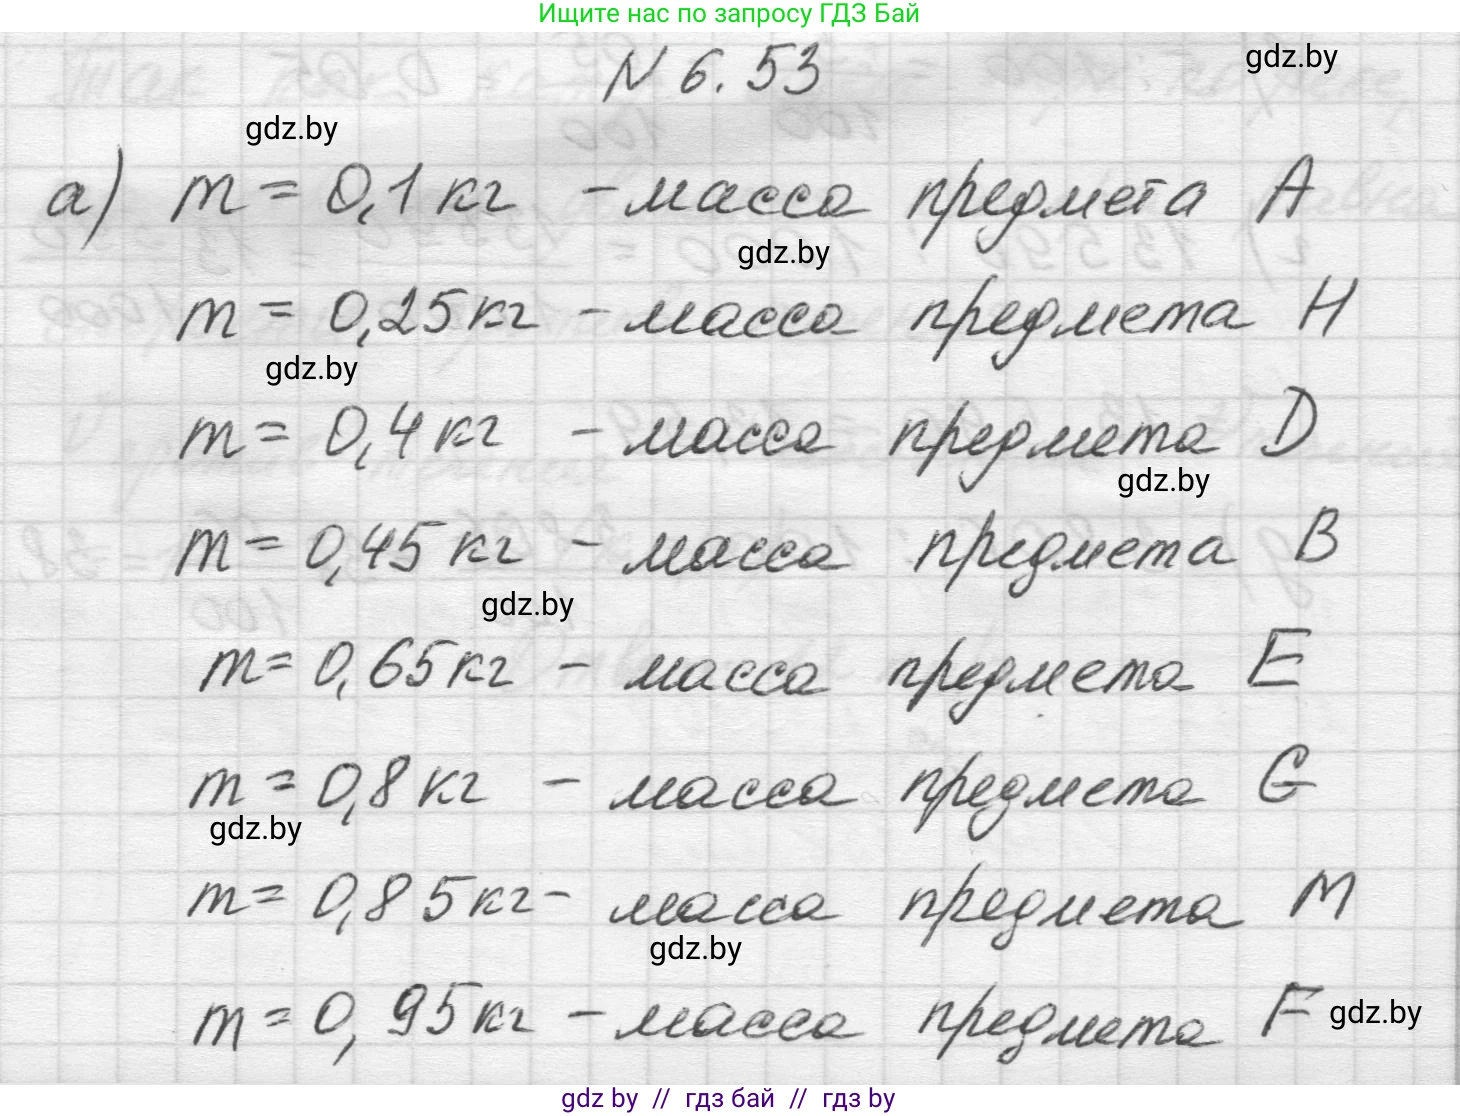 Ищите нас по запросу ГДЗ Бай
N 6.53
gdz.by
gdz.by
а) m = 0,1 кг - масса предмета A
gdz.by
m = 0,25 кг - масса предмета H
gdz.by
m = 0,4 кг - масса предмета D
gdz.by
m = 0,45 кг - масса предмета B
gdz.by
m = 0,65 кг - масса предмета E
m = 0,8 кг - масса предмета G
gdz.by
m = 0,85 кг - масса предмета M
gdz.by
m = 0,95 кг - масса предмета F
gdz.by
gdz by // гдз бай // гдз by